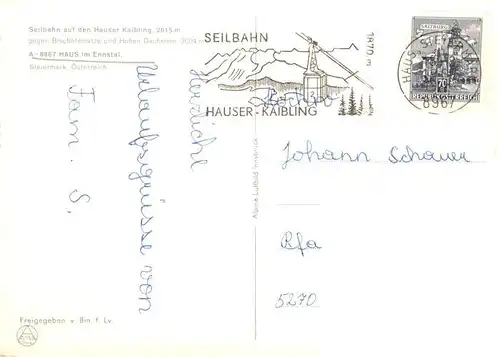 Seilbahn auf den Hauser Kaibling, 2015 m
gegen Bischofsmütze und Hohen Dachstein, 3004 m
A - 8967 HAUS im Ennstal
Steiermark, Österreich
SEILBAHN
1870 m
HAUSER-KAIBLING
HAUS
8967
SALZBURG
REPUBLIK ÖSTERREICH
Herzliche
Urlaubsgrüsse von
Fam. S.
Alpine Luftbild Innsbruck
Johann Schauer
Rfa
5270
Freigegeben v. Bm. f. Lv.